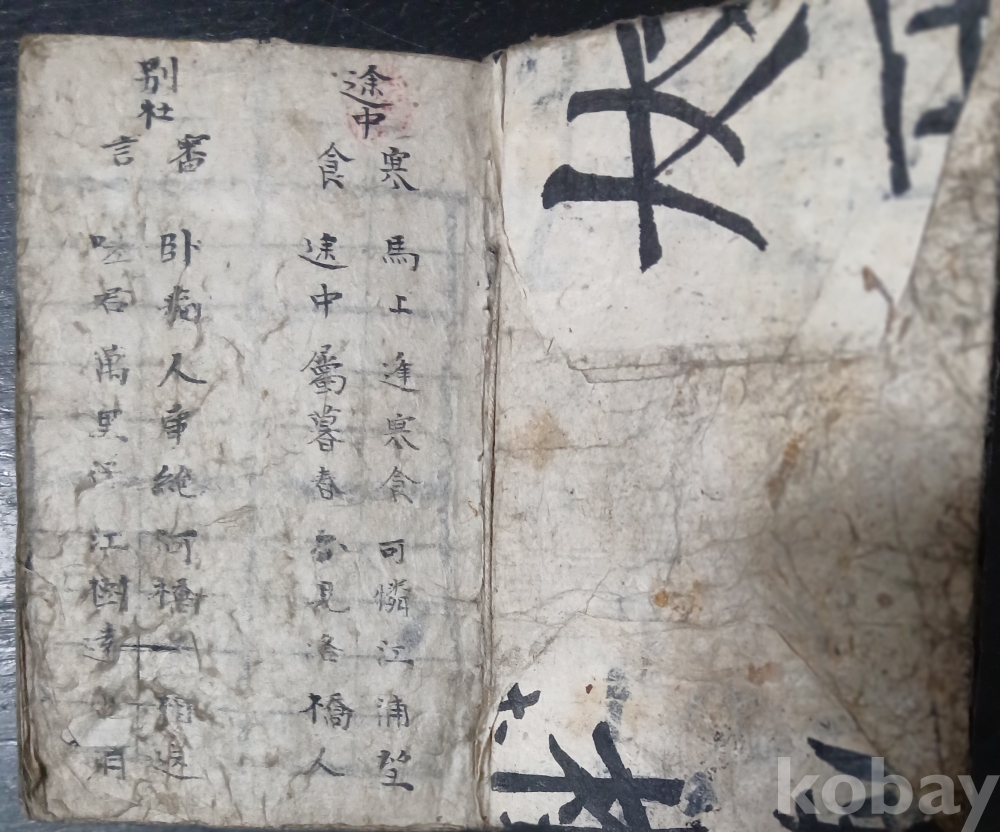 途中
寒 馬上逢寒食 可憐江浦望
食 途中屬暮春 不見洛橋人
別杜
審 臥病人事絶 河橋 相送
言 嗟君萬里 江樹遠
kobay